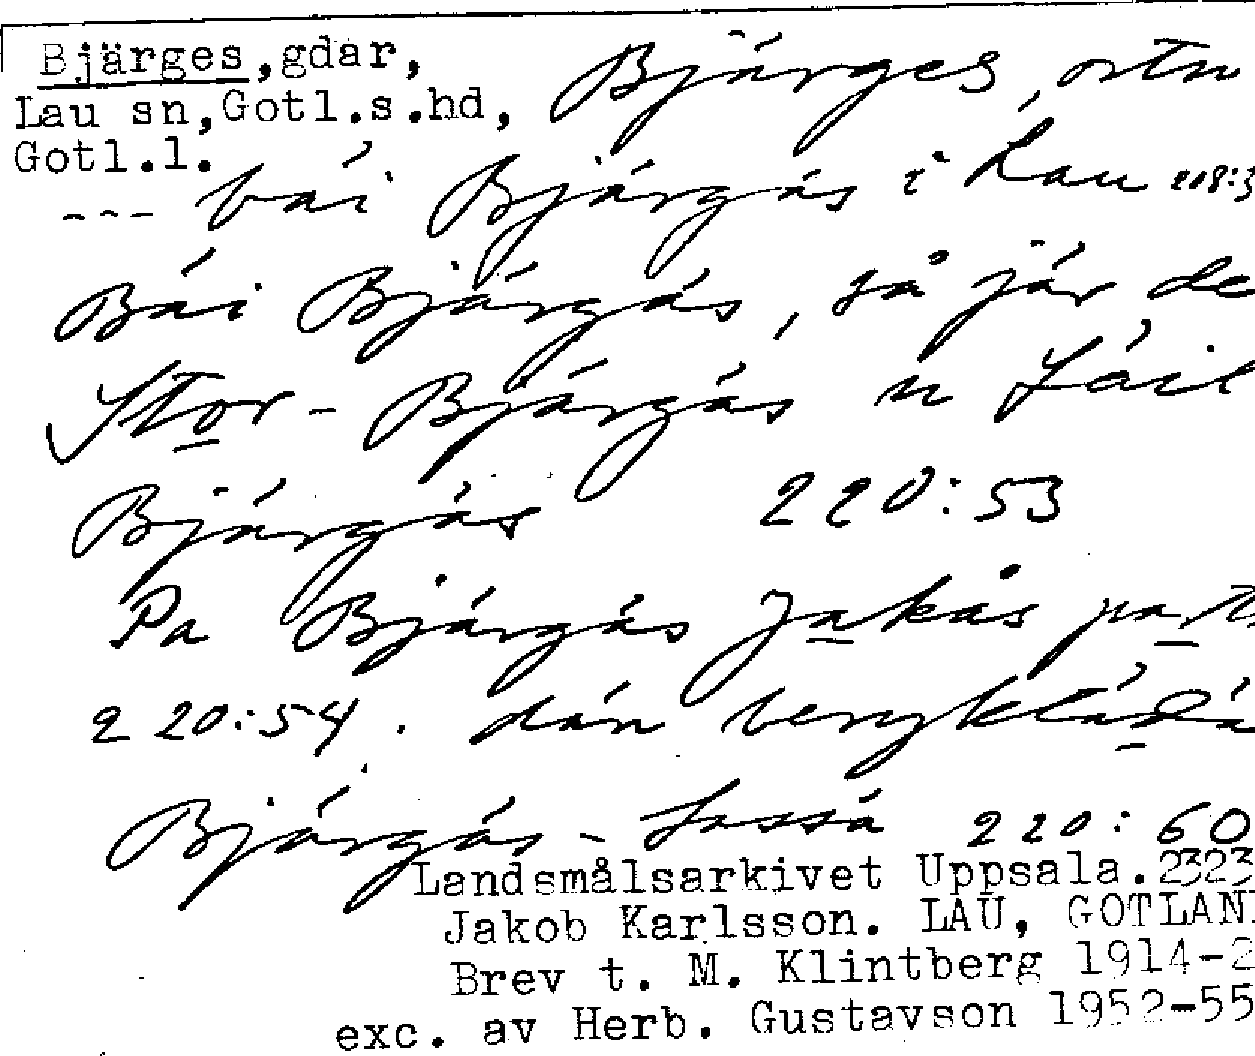 Bjärges, gdar,
Lau sn, Gotl.s.hd,
Gotl.l.
Bjärges, ortn
--- bái Bjárgás i Lau 218:3
Bái Bjárgás, så jár de
Stor-Bjárgás u
Bjárgás 220:53
Pa Bjárgás Jakás part
220:54. dán
Bjárgás- 220:60
Landsmålsarkivet Uppsala. 2323
Jakob Karlsson. LAU, GOTLAN
Brev t. M. Klintberg 1914-2
exc. av Herb. Gustavson 1952-55